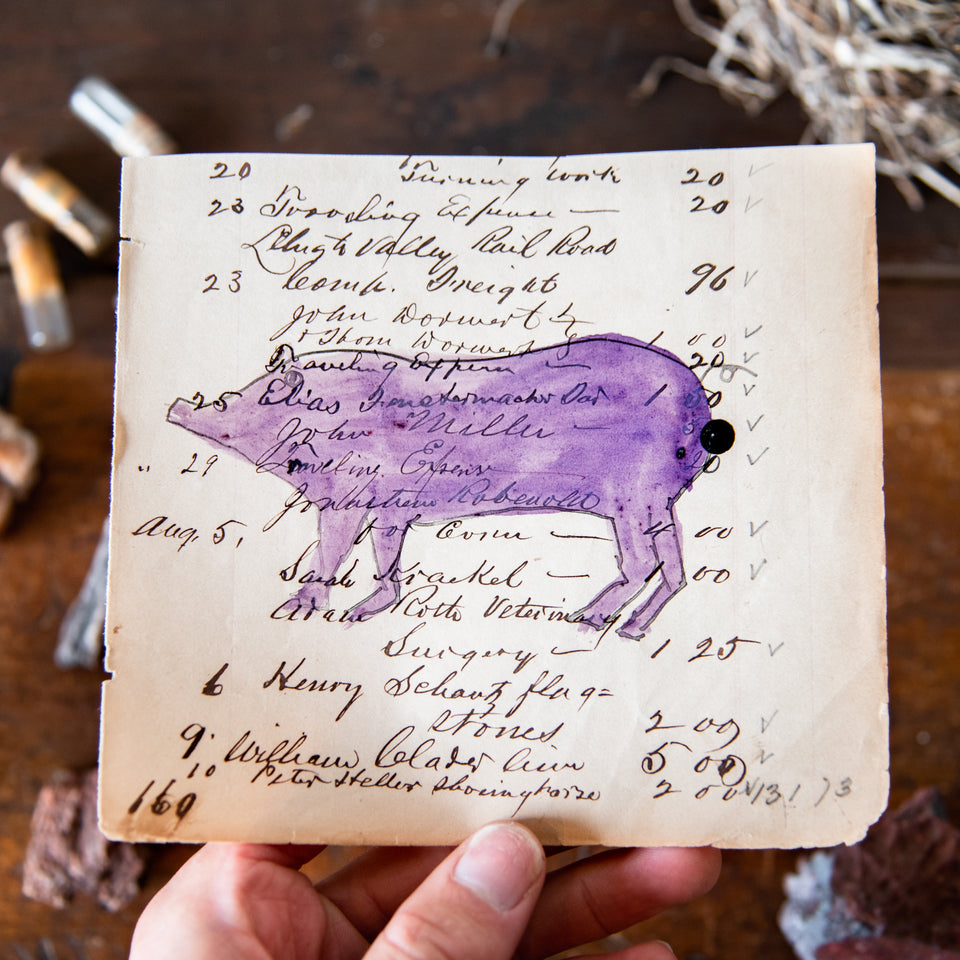 20 Turning Work 20 ✓
23 Traveling Expense — 20 ✓
Lehigh Valley Rail Road
23 Comp. Freight 96 ✓
John Dorwert &
Thom Dorwert 1 00 ✓
Traveling Expens — 20 ✓
25 Elias Dar 1 50 ✓
John Miller — ✓
" 29 Traveling Expense 20 ✓
Jonathan
Aug. 5, for — 4 00 ✓
Sarah Krackel — 1 00 ✓
Adam Roth Veterinary
Surgery — 1 25 ✓
6 Henry Schantz flag=
stones 2 00 ✓
9 William Clader lime 5 00 ✓
10 Peter Heller shoeing horse 2 00 ✓ 131 73
169